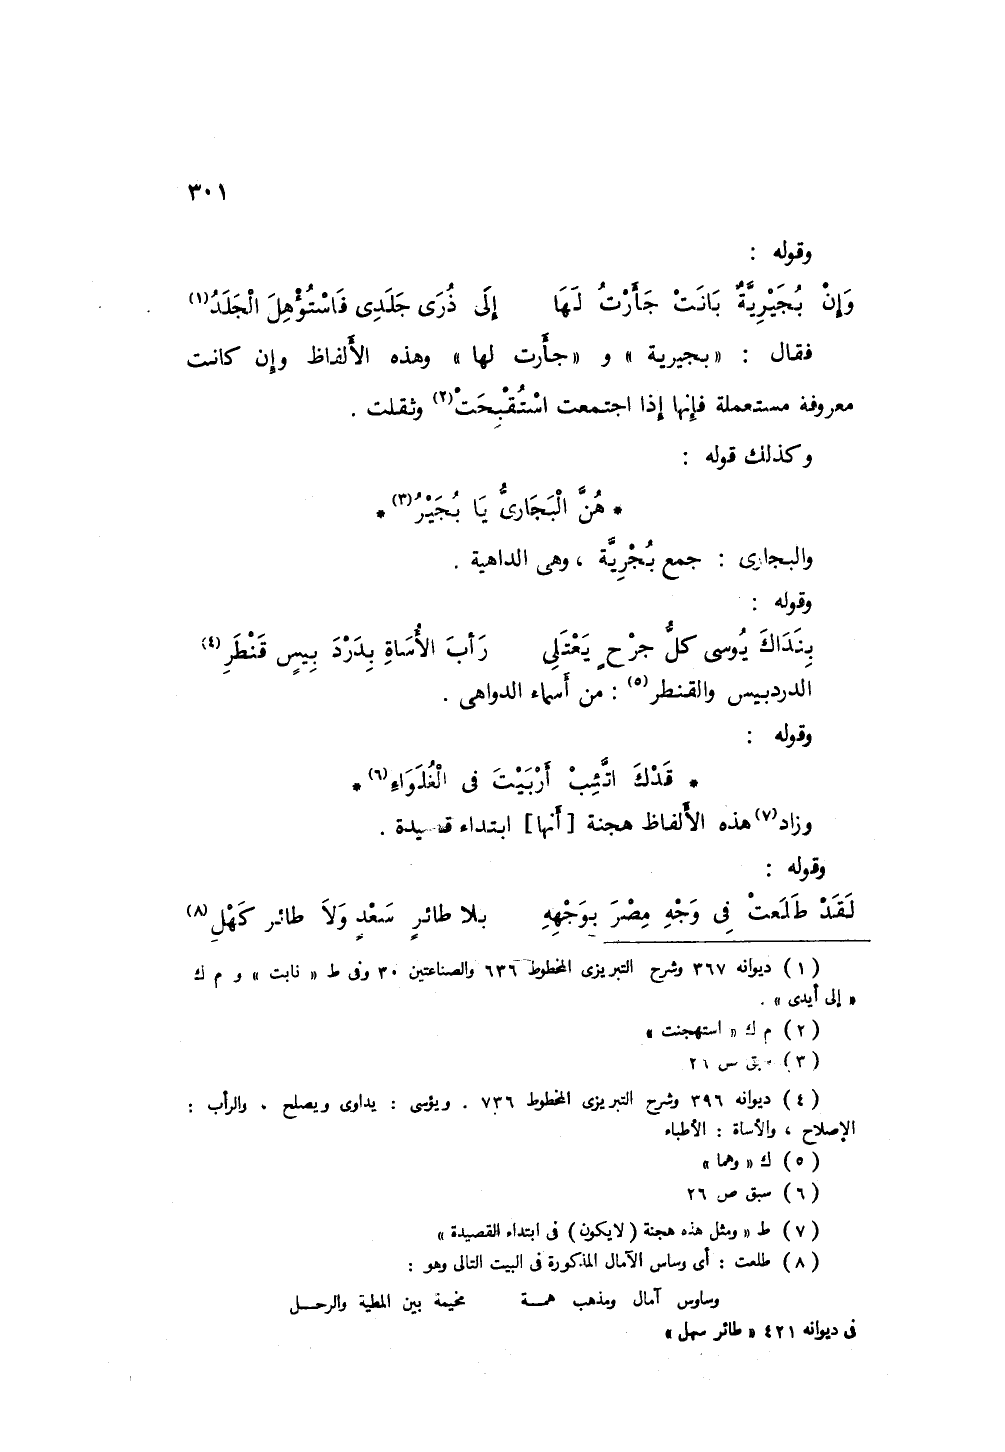 ٣٠١
وقوله :
وَإِنْ بُجَيْرِيَّةٌ بَانَتْ جَأَرْتُ لَهَا إِلَى ذُرَى جَلَدِى فَاسْتُؤْهِلَ الْجَلَدُ(١)
فقال : « بجيرية » و « جأرت لها » وهذه الألفاظ وإن كانت
معروفة مستعملة فإنها إذا اجتمعت اسْتُقْبِحَتْ(٢) وثقلت .
وكذلك قوله :
* هُنَّ الْبَجَارىُّ يَا بُجَيْرُ(٣) *
والبجارى : جمع بُجْرِيَّة ، وهى الداهية .
وقوله :
بِنَدَاكَ يُوسى كلُّ جرْحٍ يَعْتَلِى رَأبَ الأُسَاةِ بِدَرْدَ بِيسٍ قَنْطَرِ(٤)
الدردبيس والقنطر(٥) : من أسماء الدواهى .
وقوله :
* قَدْكَ اتَّئِبْ أَرْبَيْتَ فى الْغُلَوَاءِ(٦) *
وزاد(٧) هذه الألفاظ هجنة [ أنها ] ابتداء قصيدة .
وقوله :
لَقَدْ طَلَعتْ فِى وَجْهِ مِصْرَ بِوَجْهِهِ بلا طائرٍ سَعْدٍ وَلاَ طائر كَهْلِ(٨)
( ١ ) ديوانه ٣٦٧ وشرح التبريزى المخطوط ٦٣٦ والصناعتين ٣٠ وفى ط « نابت » و م ك
« إلى أيدى » .
( ٢ ) م ك « استهجنت »
( ٣ ) سبق ص ٢٦
( ٤ ) ديوانه ٣٩٦ وشرح التبريزى المخطوط ٧٣٦ . ويؤسى : يداوى ويصلح . والرأب :
الإصلاح ، والأساة : الأطباء
( ٥ ) ك « وهما »
( ٦ ) سبق ص ٢٦
( ٧ ) ط « ومثل هذه هجنة ( لايكون ) فى ابتداء القصيدة »
( ٨ ) طلعت : أى وساس الآمال المذكورة فى البيت التالى وهو :
وساوس آمال ومذهب همـة مخيمة بين المطية والرحـل
فى ديوانه ٤٢١ « طائر سهل »